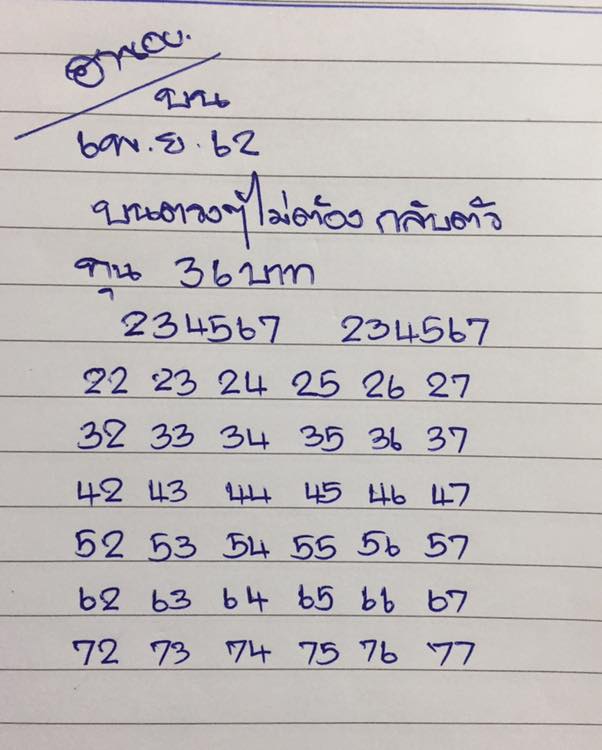 ฮานอย.
บน
6 พ.ย. 62
บนตรงๆ ไม่ต้อง กลับตัว
ทุน 36 บาท
234567 234567
22 23 24 25 26 27
32 33 34 35 36 37
42 43 44 45 46 47
52 53 54 55 56 57
62 63 64 65 66 67
72 73 74 75 76 77